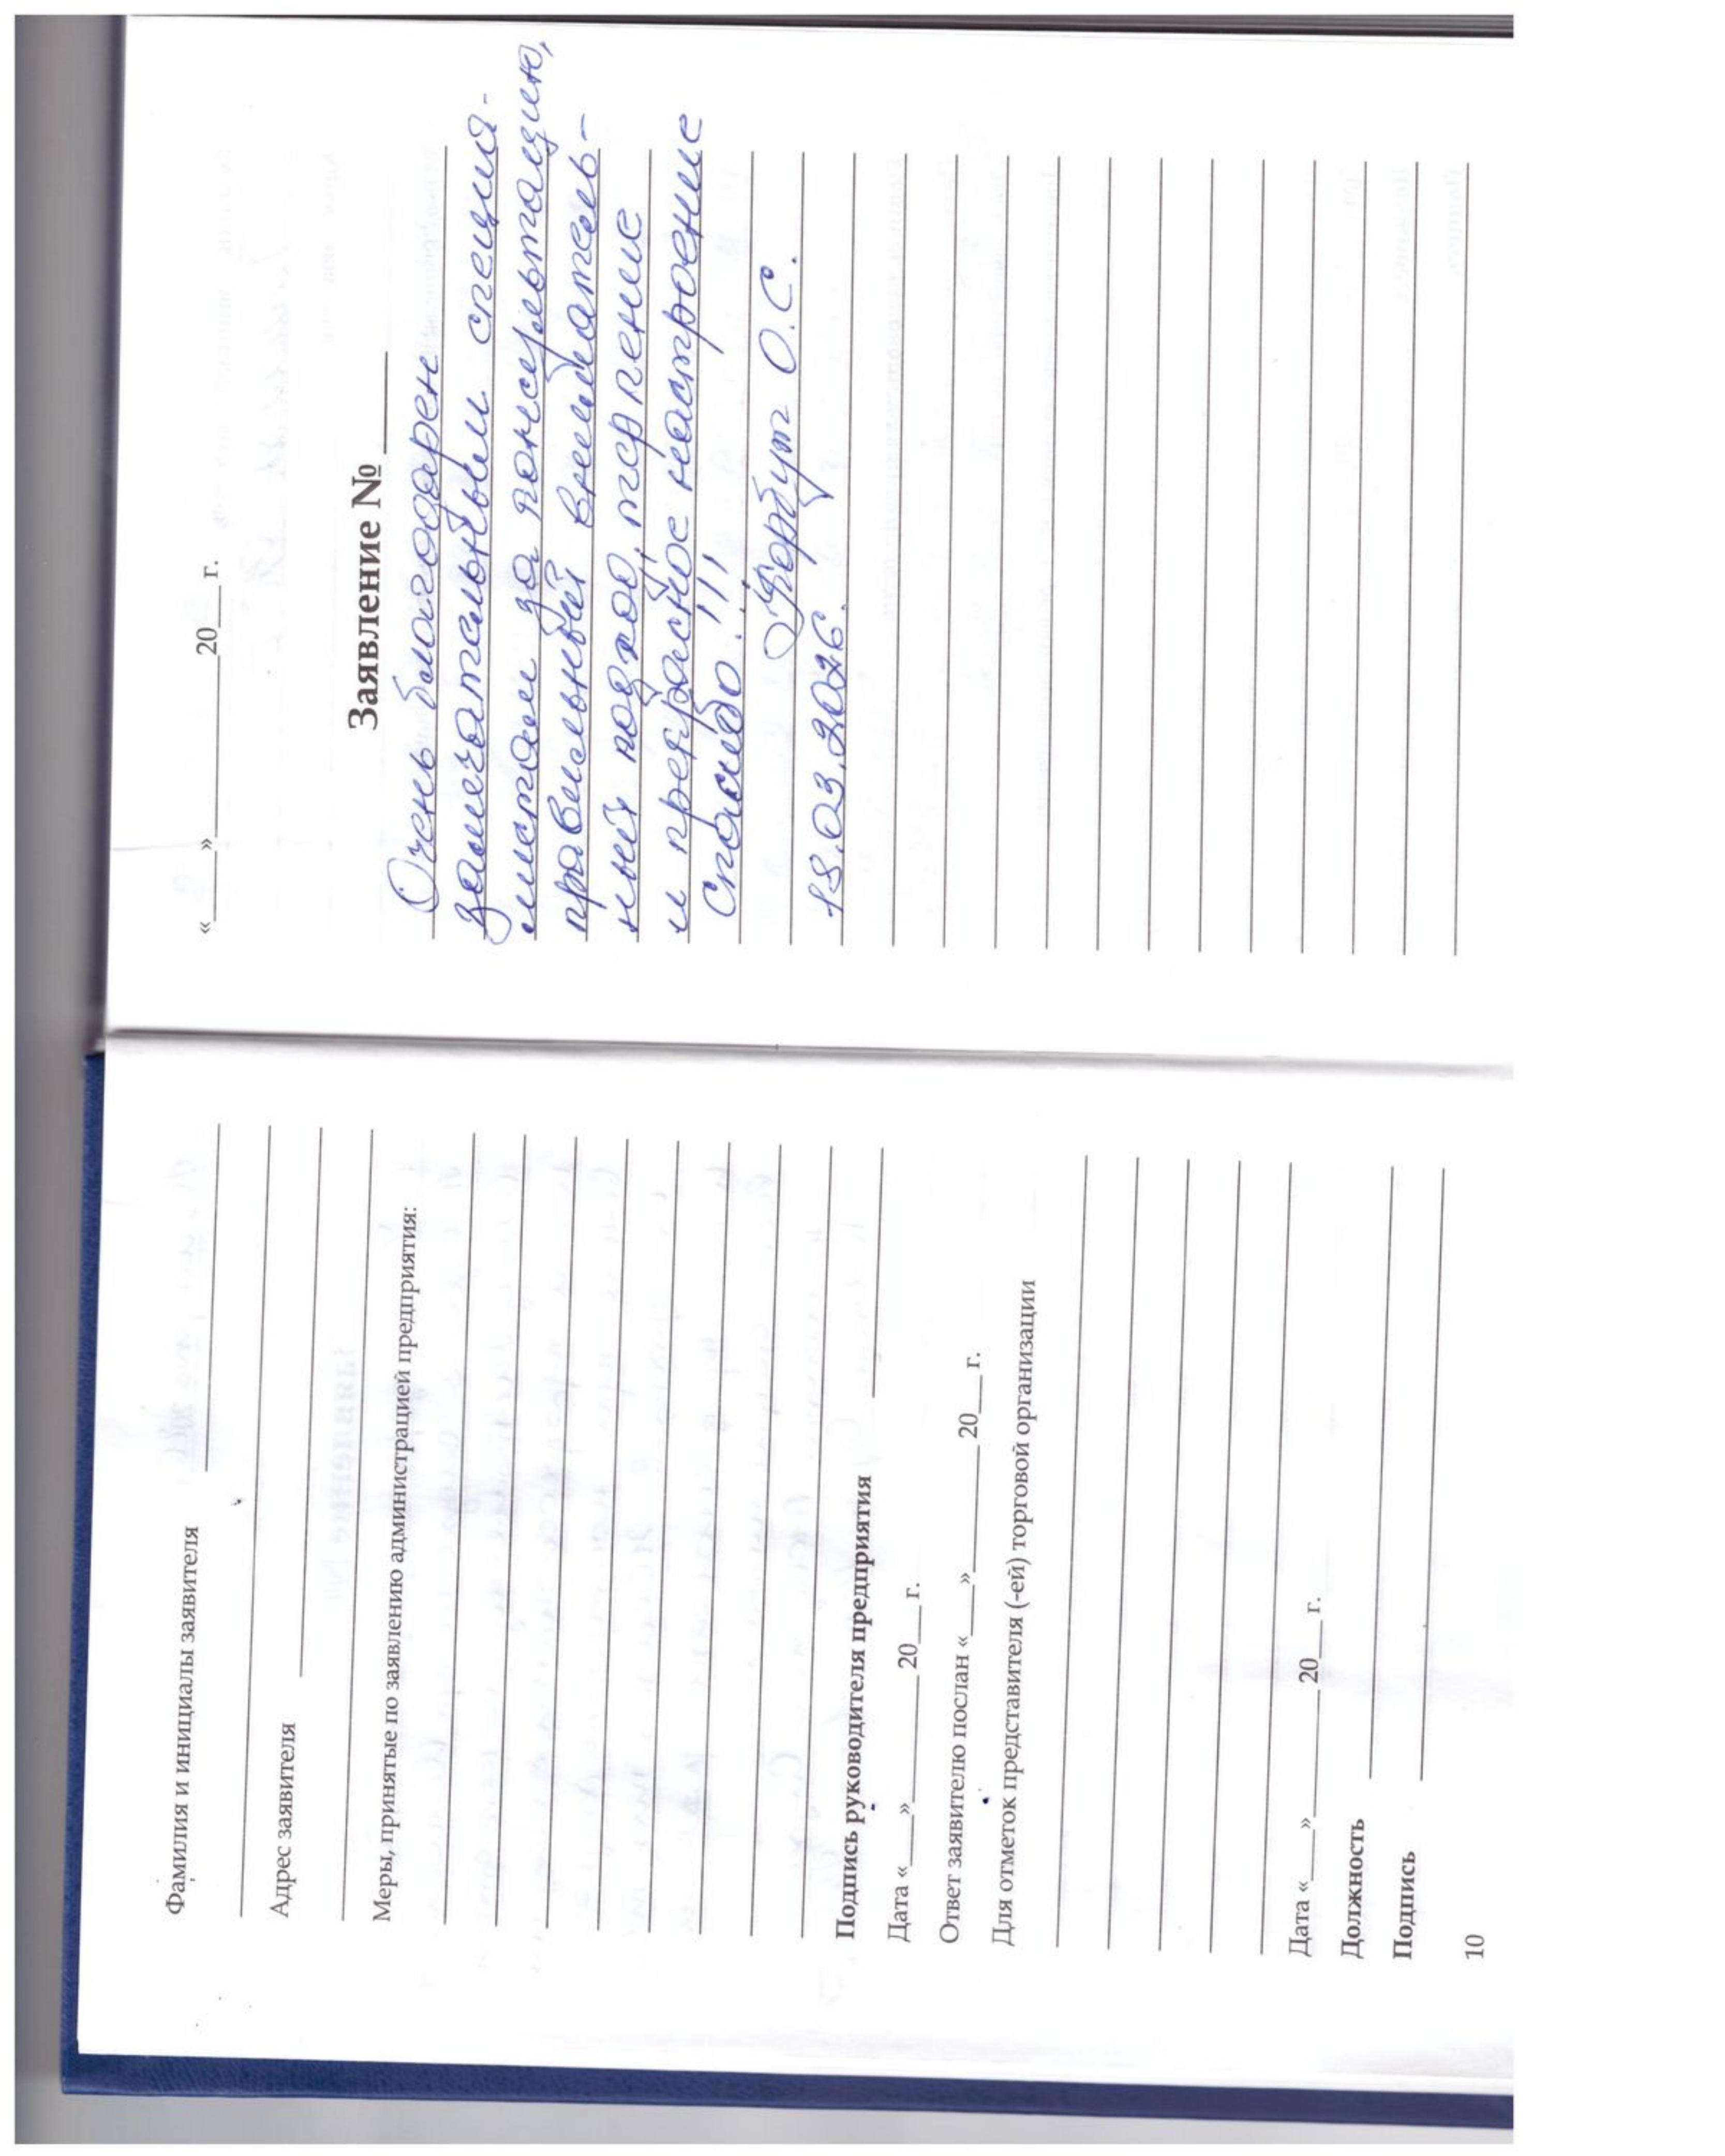 Фамилия и инициалы заявителя
Адрес заявителя
Меры, принятые по заявлению администрацией предприятия:
Подпись руководителя предприятия
Дата «___»________20___г.
Ответ заявителю послан «___»________20___г.
Для отметок представителя (-ей) торговой организации
Дата «___»________20___г.
Должность
Подпись
10
«___»________20___г.
Заявление № ____
Очень благодарен
замечательным специа-
листам за консультацию,
правильный вниматель-
ный подход, терпение
и прекрасное настроение
Спасибо!!!
О.С.
18.03.2026.